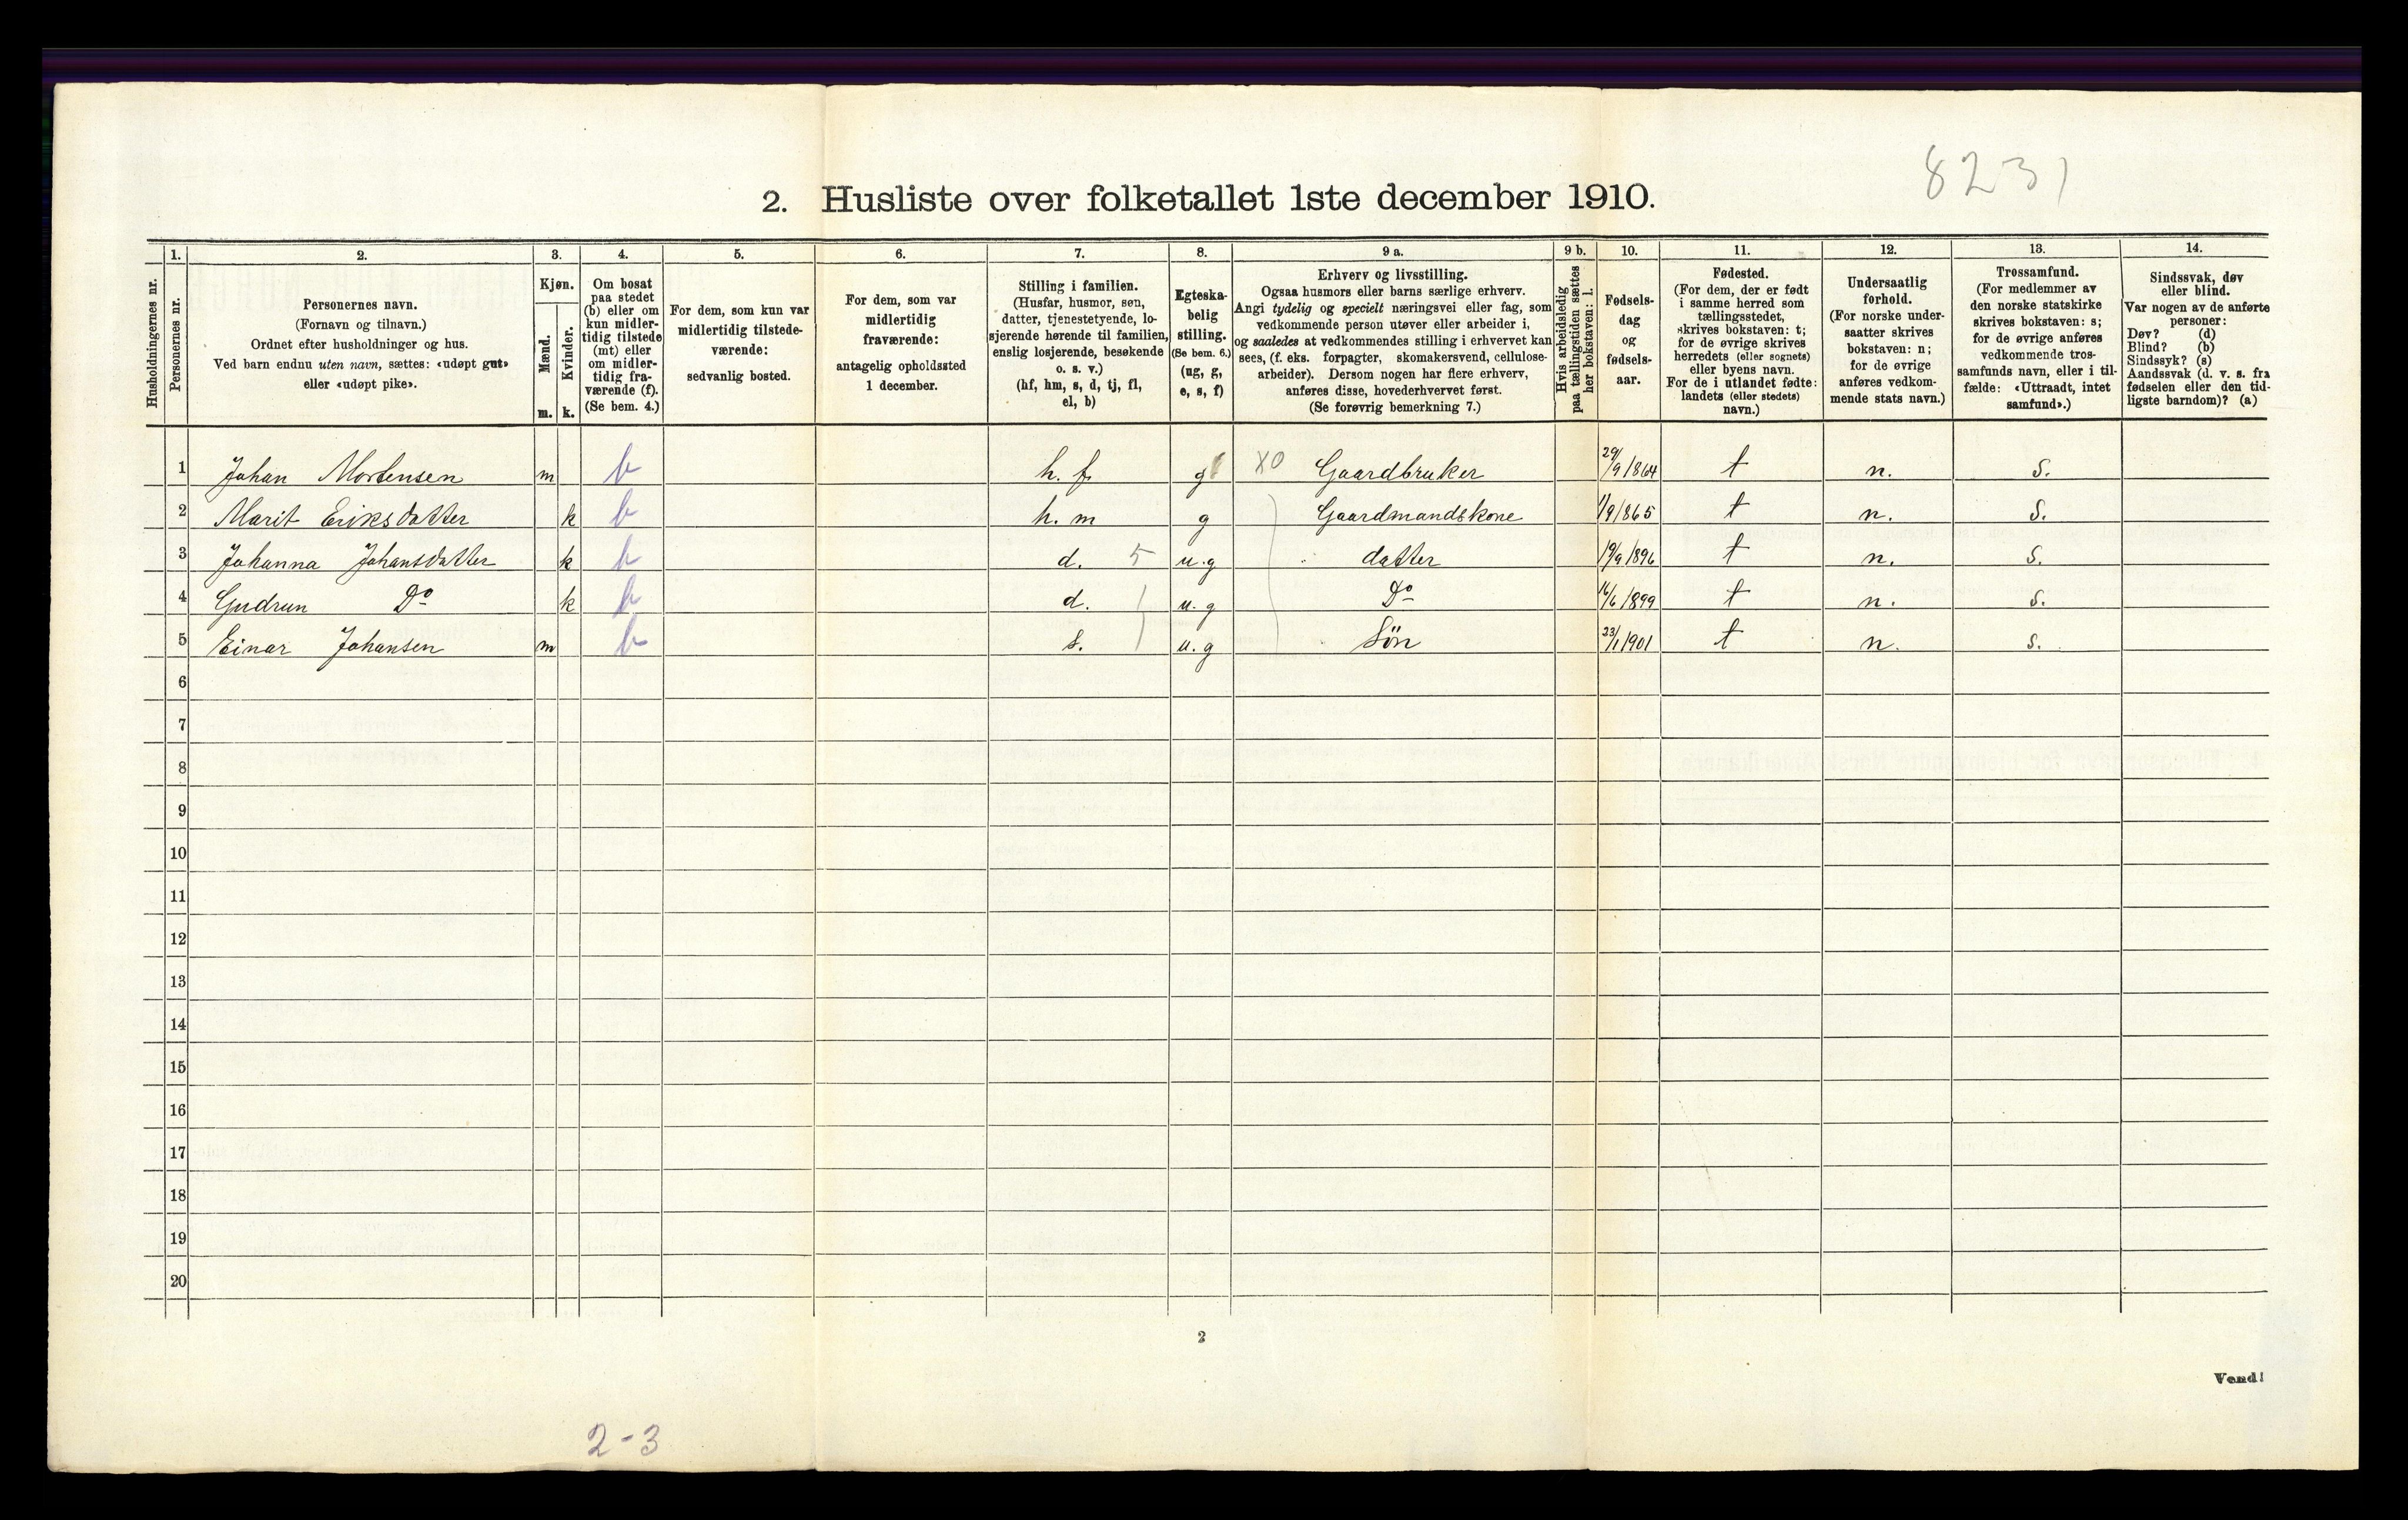 8231
2. Husliste over folketallet 1ste december 1910.
Husholdningernes nr.
1.
Personernes nr.
2.
Personernes navn.
(Fornavn og tilnavn.)
Ordnet efter husholdninger og hus.
Ved barn endnu uten navn, sættes: «udøpt gut»
eller «udøpt pike».
3.
Kjøn.
Mænd.
m.
Kvinder.
k.
4.
Om bosat
paa stedet
(b) eller om
kun midler-
tidig tilstede
(mt) eller
om midler-
tidig fra-
værende (f).
(Se bem. 4.)
5.
For dem, som kun var
midlertidig tilstede-
værende:
sedvanlig bosted.
6.
For dem, som var
midlertidig
fraværende:
antagelig opholdssted
1 december.
7.
Stilling i familien.
(Husfar, husmor, søn,
datter, tjenestetyende, lo-
sjerende hørende til familien,
enslig losjerende, besøkende
o. s. v.)
(hf, hm, s, d, tj, fl,
el, b)
8.
Egteska-
belig
stilling.
(Se bem. 6.)
(ug, g,
e, s, f)
9 a.
Erhverv og livsstilling.
Ogsaa husmors eller barns særlige erhverv.
Angi tydelig og specielt næringsvei eller fag, som
vedkommende person utøver eller arbeider i,
og saaledes at vedkommendes stilling i erhvervet kan
sees, (f. eks. forpagter, skomakersvend, cellulose-
arbeider). Dersom nogen har flere erhverv,
anføres disse, hovederhvervet først.
(Se forøvrig bemerkning 7.)
9 b.
Hvis arbeidsledig
paa tællingstiden sættes
her bokstaven: l.
10.
Fødsels-
dag
og
fødsels-
aar.
11.
Fødested.
(For dem, der er født
i samme herred som
tællingsstedet,
skrives bokstaven: t;
for de øvrige skrives
herredets (eller sognets)
eller byens navn.
For de i utlandet fødte:
landets (eller stedets)
navn.)
12.
Undersaatlig
forhold.
(For norske under-
saatter skrives
bokstaven: n;
for de øvrige
anføres vedkom-
mende stats navn.)
13.
Trossamfund.
(For medlemmer av
den norske statskirke
skrives bokstaven: s;
for de øvrige anføres
vedkommende tros-
samfunds navn, eller i til-
fælde: «Uttraadt, intet
samfund».)
14.
Sindssvak, døv
eller blind.
Var nogen av de anførte
personer:
Døv? (d)
Blind? (b)
Sindssyk? (s)
Aandssvak (d. v. s. fra
fødselen eller den tid-
ligste barndom)? (a)
1 Johan Mortensen m b h. f g X0 Gaardbruker 29/9 1864 t n. s.
2 Marit Eriksdatter k b h. m g Gaardmandskone 1/9 1865 t n. s.
3 Johanna Johansdatter k b d. 5 u. g datter 19/9 1896 t n. s.
4 Gudrun Do k b d. u. g Do 16/6 1899 t n. s.
5 Einar Johansen m b s. u. g Søn 23/1 1901 t n. s.
6
7
8
9
10
11
12
13
14
15
16
17
18
19
20
2
Vend!
2-3